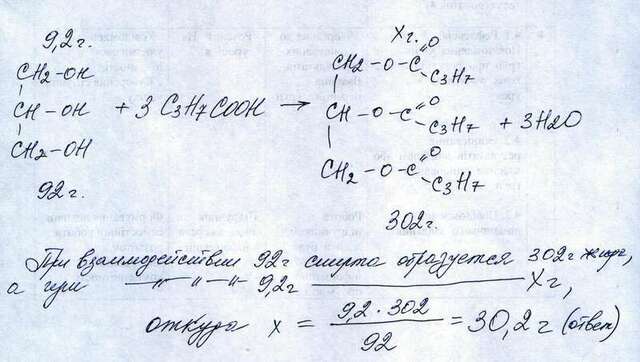 9,2 г. Xг.
CH2-OH CH2-O-C=O C3H7
CH-OH + 3 C3H7COOH → CH-O-C=O C3H7 + 3H2O
CH2-OH CH2-O-C=O C3H7
92 г. 302 г.
При взаимодействии 92 г спирта образуется 302 г жира,
а при —"—"— 9,2 г ——— Xг,
откуда x = 9,2 · 302 / 92 = 30,2 г (ответ)